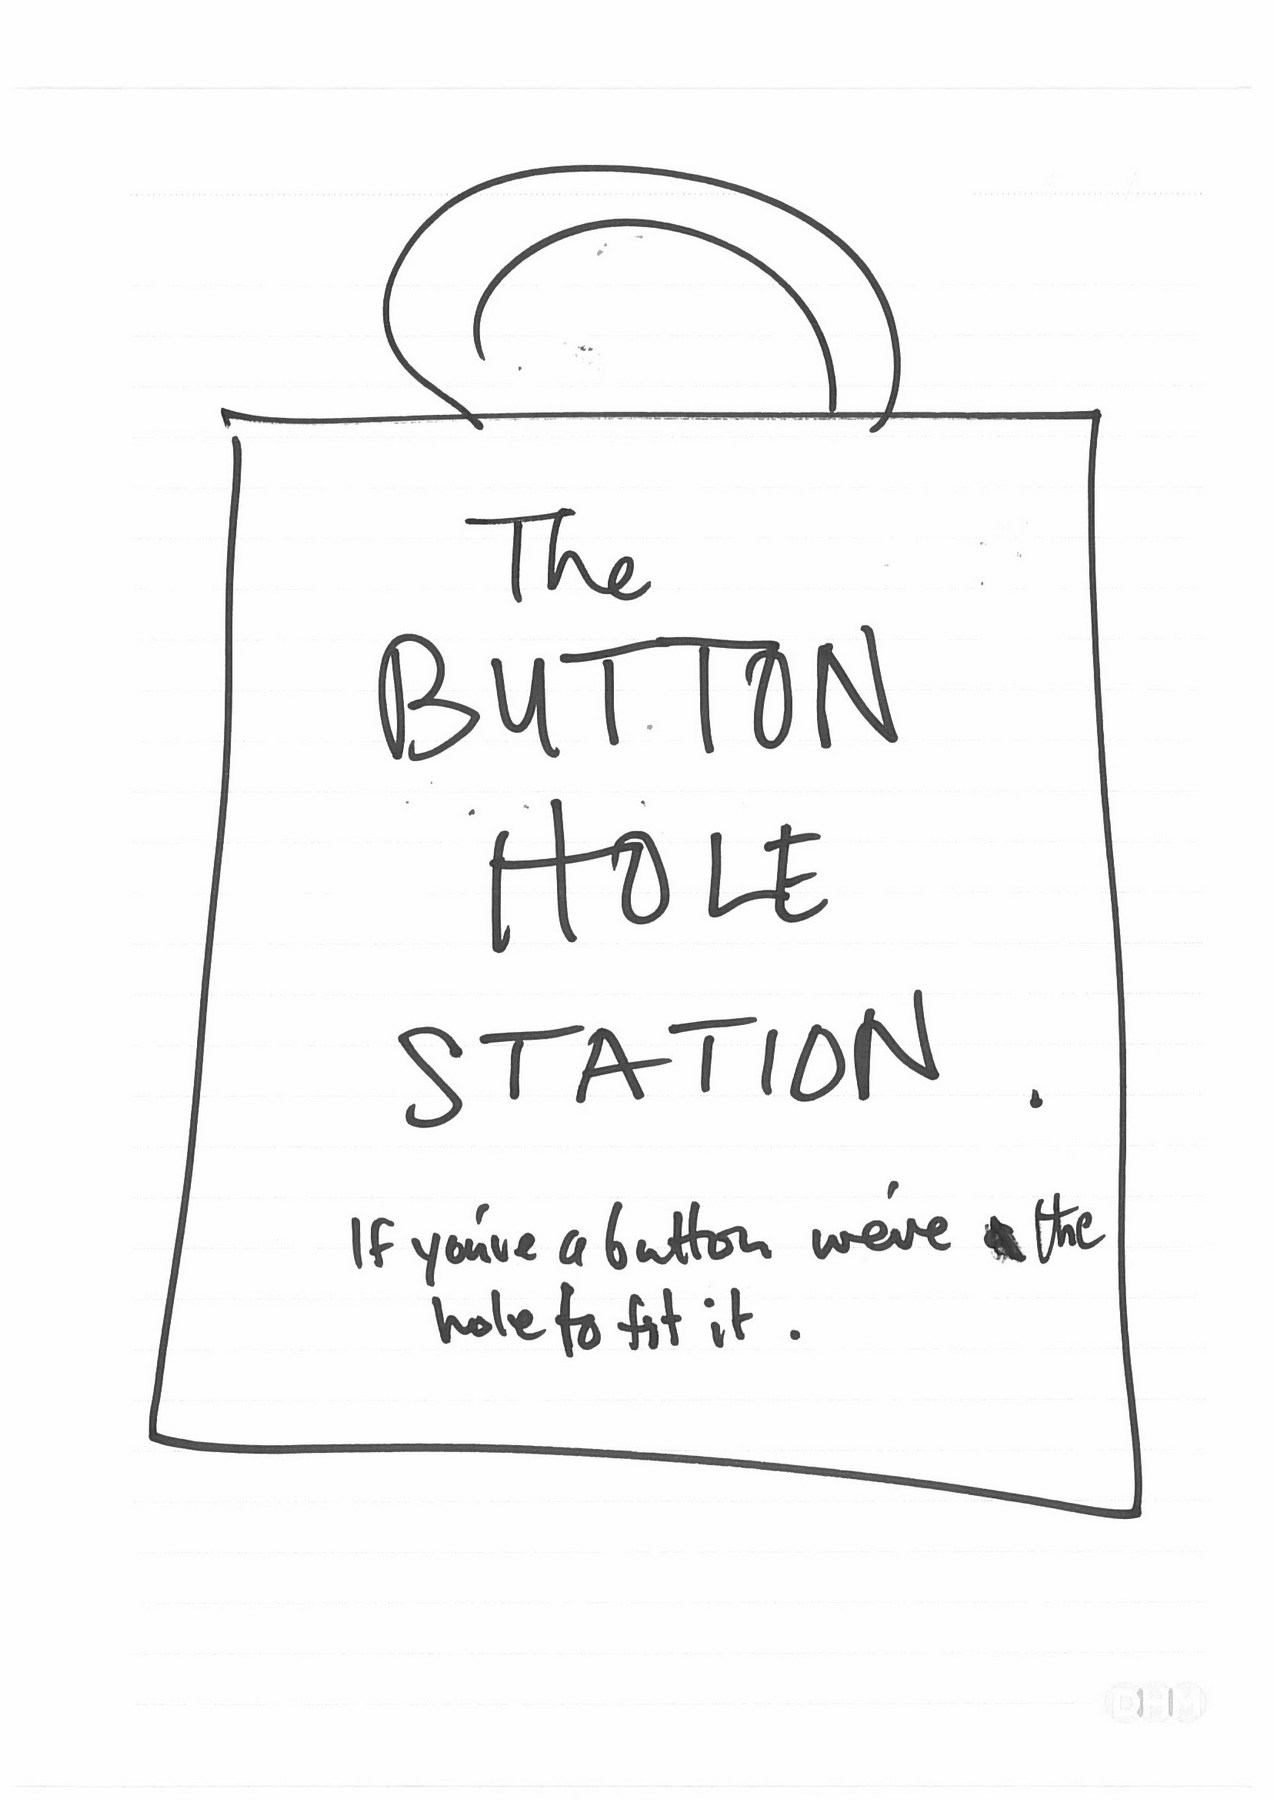 The
BUTTON
HOLE
STATION.
If you've a button we've the
hole to fit it.
DHM